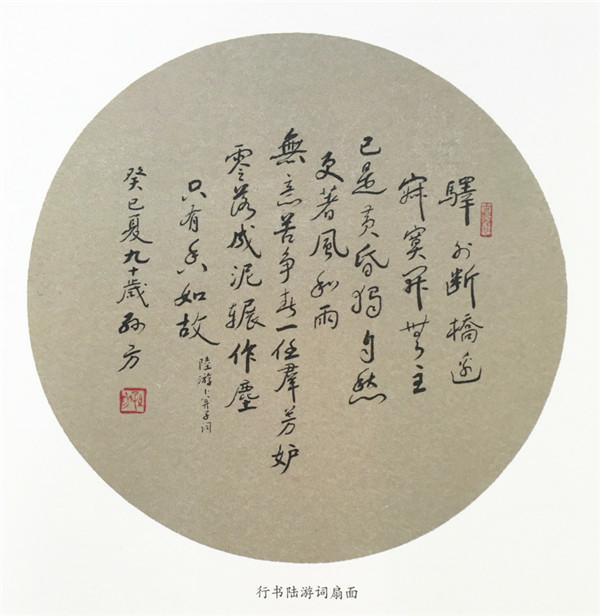 驛外斷橋邊
寂寞開無主
已是黃昏獨自愁
更著風和雨
無意苦爭春一任羣芳妒
零落成泥輾作塵
只有香如故
陸游卜算子词
癸巳夏九十歲孙方
行书陆游词扇面